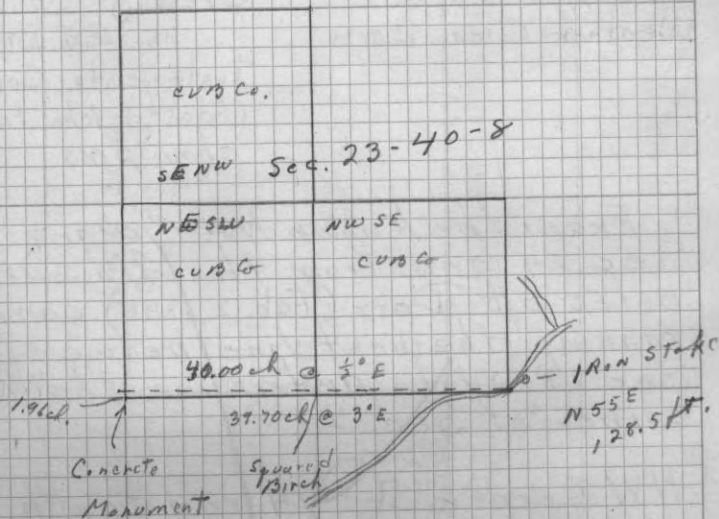 CVB Co.
SENW Sec. 23-40-8
NESW NWSE
CVB Co CVB Co
40.00 ch @ ½° E
1.96 ch.
39.70 ch @ 3° E
IRON STAKE
N 55 E
128.5 ft.
Concrete
Monument
Squared
Birch